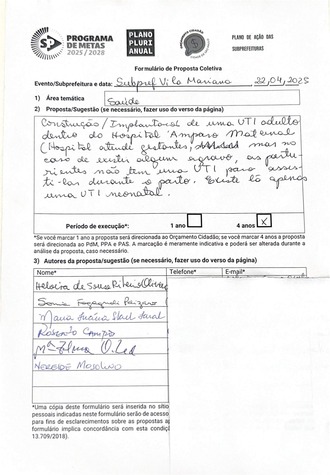 SP
PROGRAMA
DE METAS
2025 / 2028
PLANO
PLURI
ANUAL
PLANO DE AÇÃO DAS
SUBPREFEITURAS
Formulário de Proposta Coletiva
Evento/Subprefeitura e data: Subpref Vila Mariana 22/04/2025
1) Área temática Saúde
2) Proposta/Sugestão (se necessário, fazer uso do verso da página)
Construção/Implantação de uma UTI adulto
dentro do Hospital Amparo Maternal
(Hospital atende gestantes, mas no
caso de existir algum agravo, as partu-
rientes não tem uma UTI para assis-
ti-las durante o parto. Existe lá apenas
uma UTI neonatal.
Período de execução*: 1 ano 4 anos X
*Se você marcar 1 ano a proposta será direcionada ao Orçamento Cidadão; se você marcar 4 anos a proposta
será direcionada ao PdM, PPA e PAS. A marcação é meramente indicativa e poderá ser alterada durante a
análise da proposta, caso necessário.
3) Autores da proposta/sugestão (se necessário, fazer uso do verso da página)
Nome* Telefone* E-mail*
Heloisa de Souza
Sonia
Maria
Rosento Campos
Mª Zelma O.
Nereide Mosolino
*Uma cópia deste formulário será inserida no sítio
pessoais indicadas neste formulário serão de acesso
para fins de esclarecimentos sobre as propostas a
formulário implica concordância com esta condiç
13.709/2018).